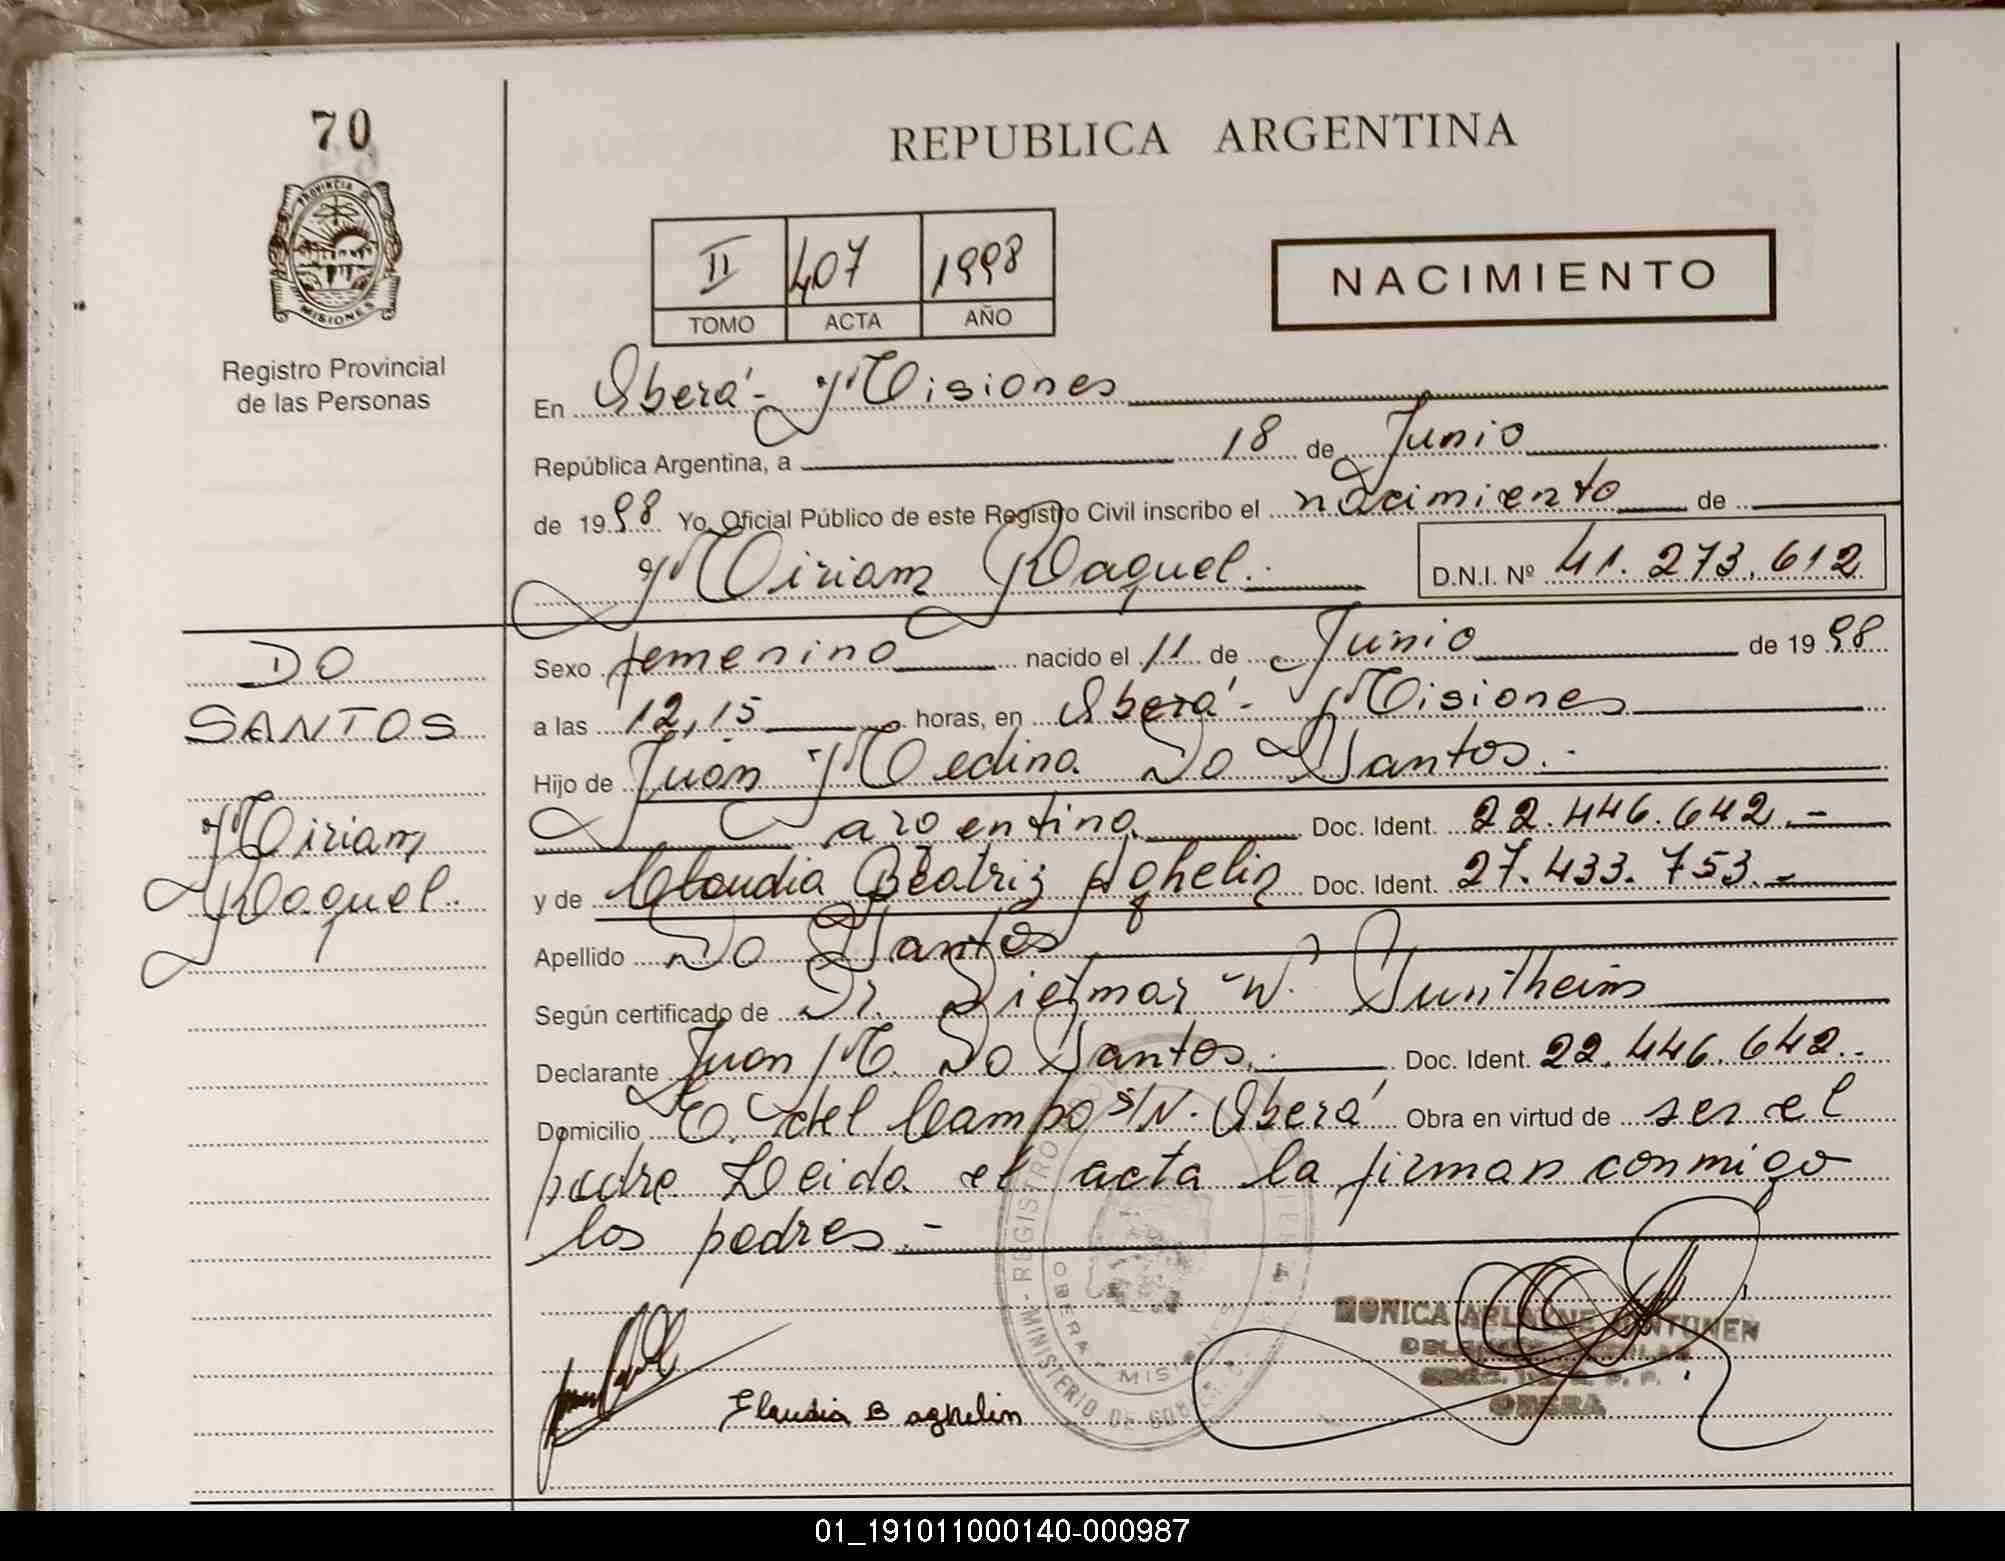 70
REPUBLICA ARGENTINA
PROVINCIA DE
MISIONES
Registro Provincial
de las Personas
II 407 1998
TOMO ACTA AÑO
NACIMIENTO
En Oberá - Misiones
República Argentina, a 18 de Junio
de 1998 Yo, Oficial Público de este Registro Civil inscribo el nacimiento de
Miriam Raquel.-
D.N.I. Nº 41.273.612
DO
SANTOS
Miriam
Raquel.
Sexo femenino nacido el 11 de Junio de 1998
a las 12,15 horas, en Oberá - Misiones
Hijo de Juan Medina Do Santos.-
argentino Doc. Ident. 22.446.642.-
y de Claudia Beatriz Aghelin Doc. Ident. 27.433.753.-
Apellido Do Santos
Según certificado de Dr. Dietmar W.
Declarante Juan M. Do Santos.- Doc. Ident. 22.446.642.-
Domicilio C. del Campo S/N. Oberá Obra en virtud de ser el
padre Leida el acta la firman conmigo
los padres.-
Claudia B aghelin
- REGISTRO
MINISTERIO DE
OBERA - MISIONES
MONICA
OBERA
01_191011000140-000987